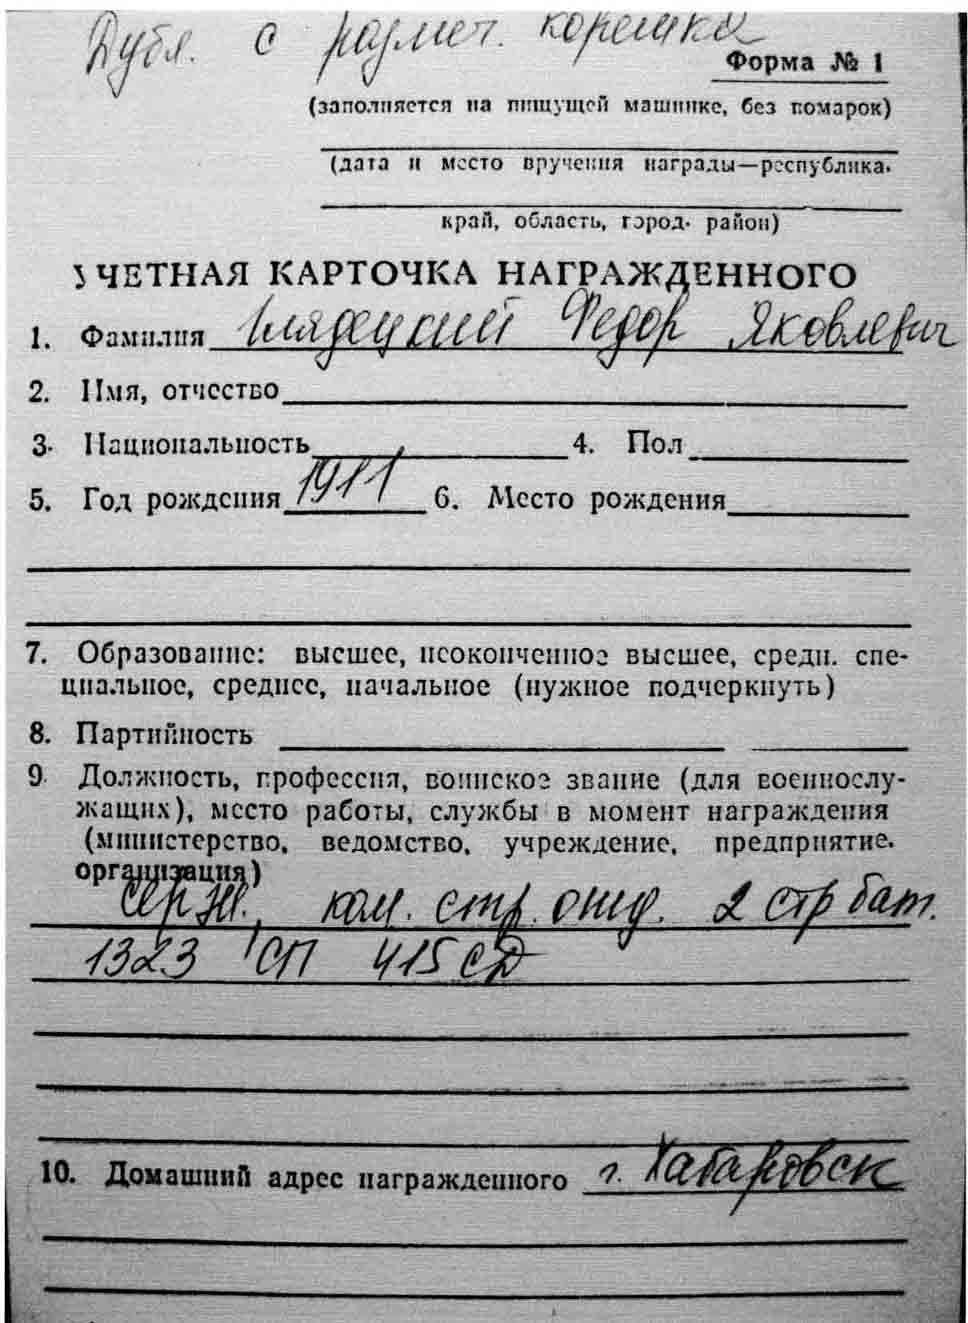 Дубл. с размет. корешка
Форма № 1
(заполняется на пишущей машинке, без помарок)
(дата и место вручения награды—республика,
край, область, город, район)
УЧЕТНАЯ КАРТОЧКА НАГРАЖДЕННОГО
1. Фамилия Федор Яковлевич
2. Имя, отчество
3. Национальность 4. Пол
5. Год рождения 1911 6. Место рождения
7. Образование: высшее, неоконченное высшее, средн. спе-
циальное, среднее, начальное (нужное подчеркнуть)
8. Партийность
9. Должность, профессия, воинское звание (для военнослу-
жащих), место работы, службы в момент награждения
(министерство, ведомство, учреждение, предприятие,
организация)
серж., ком. стр. отд. 2 стр бат.
1323 СП 415 СД
10. Домашний адрес награжденного г. Хабаровск